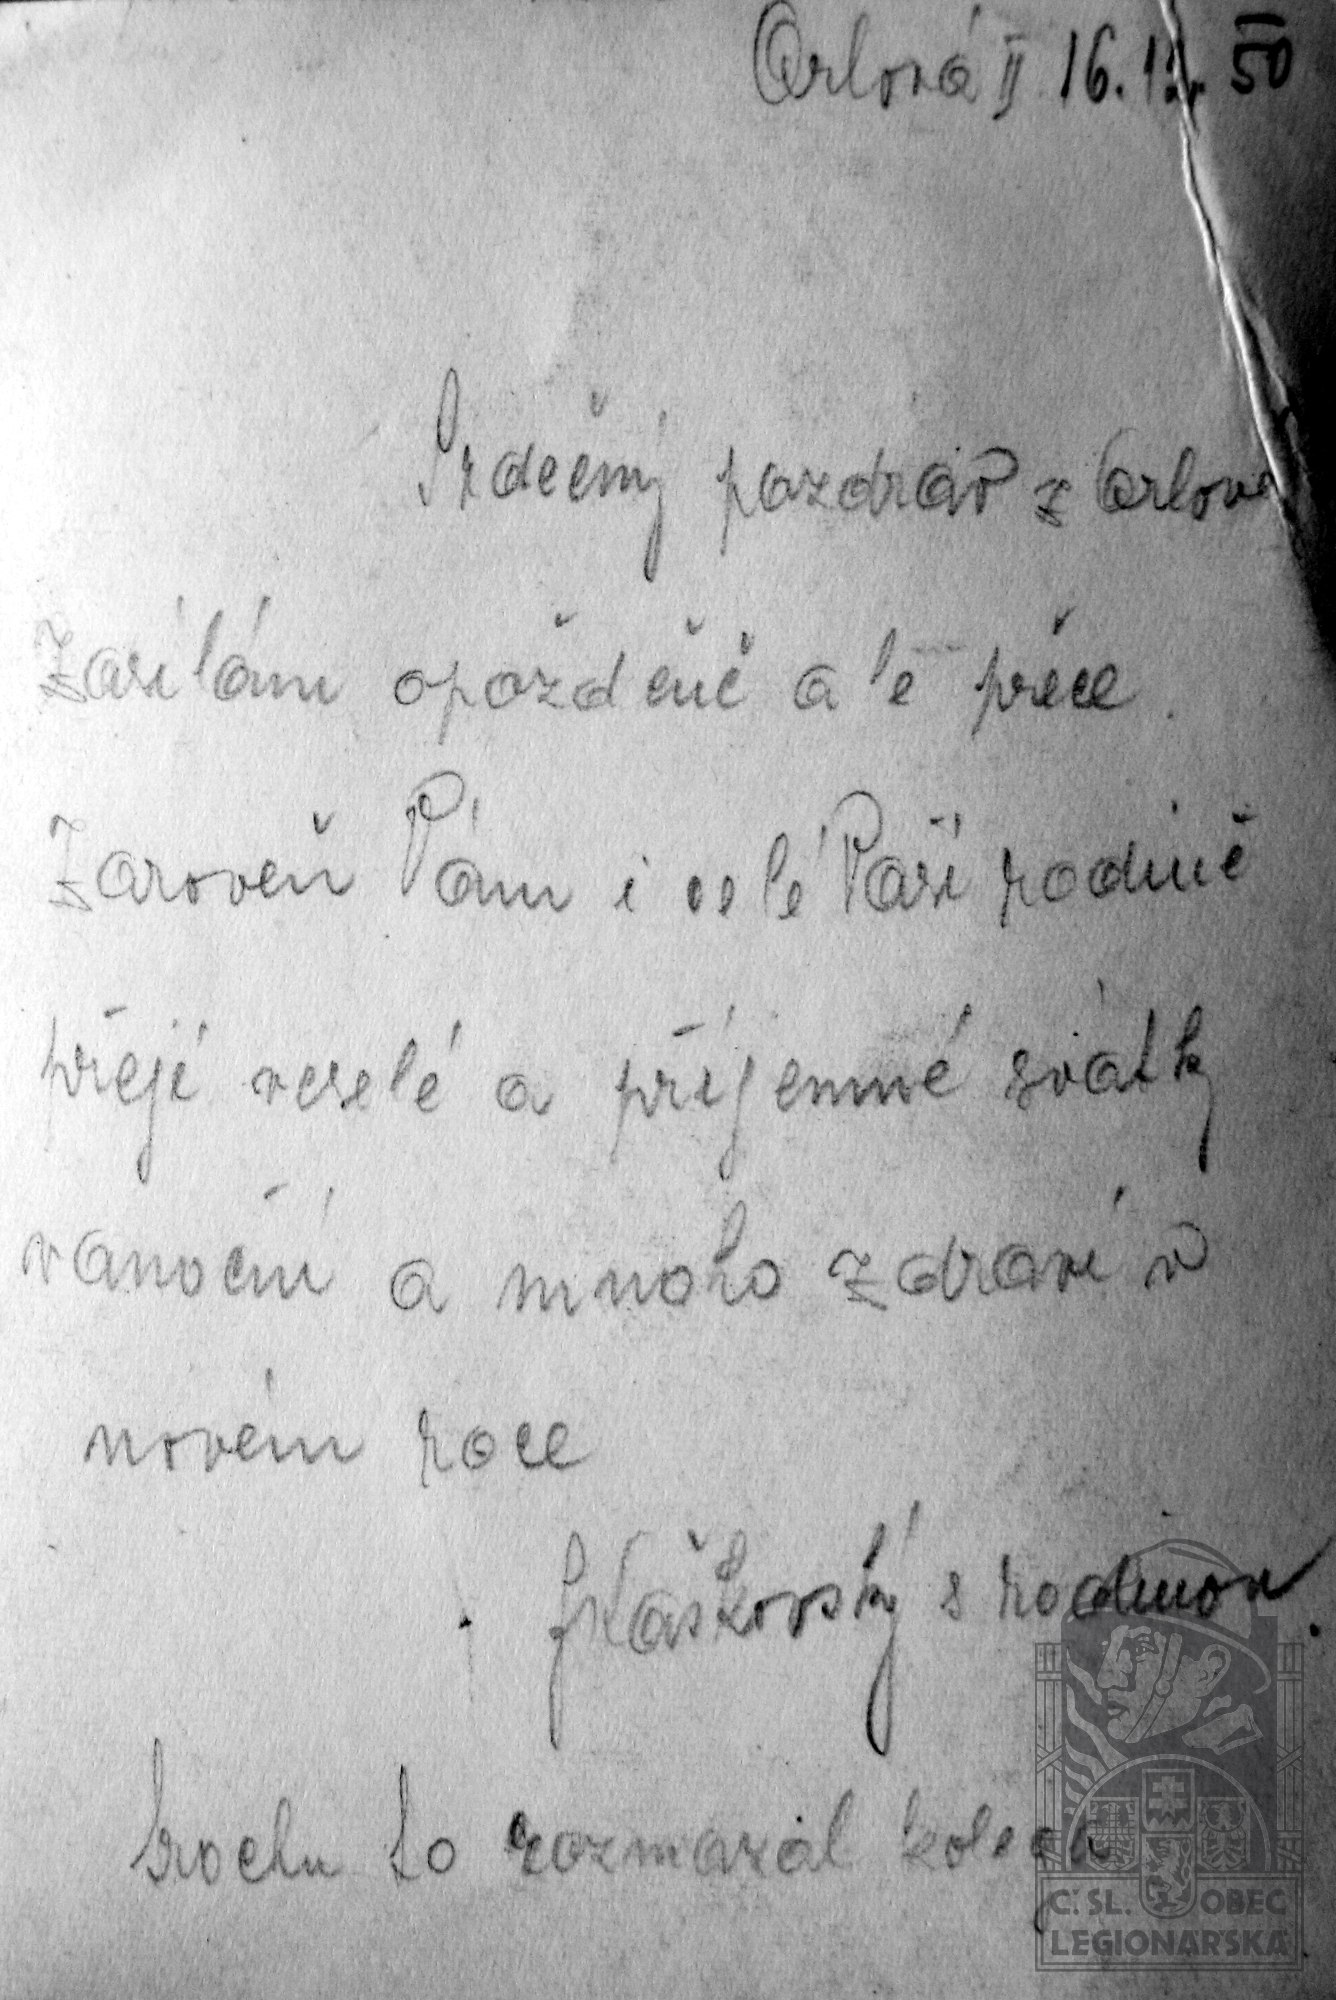 Orlová II 16.12. 50
Srdečný pozdrav z Orlové
Zasílám opožděně ale přece.
Zaroveň Vám i celé Vaší rodině
přejí veselé a příjemné svátky
vanoční a mnoho zdraví v
novém roce
Kaškovský s rodinou.
trochu to rozmazal kolega
Č. SL. OBEC
LEGIONÁŘSKÁ